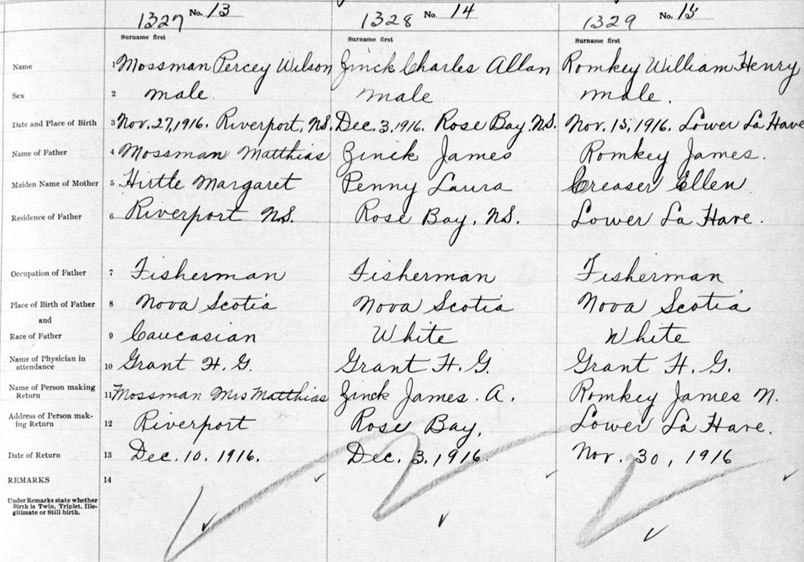 1327 No. 13 1328 No. 14 1329 No. 15
Surname first Surname first Surname first
Name 1 Mossman Percey Wilson Zinck Charles Allan Romkey William Henry
Sex 2 male male male.
Date and Place of Birth 3 Nov. 27, 1916. Riverport, N.S. Dec. 3, 1916. Rose Bay. N.S. Nov. 15, 1916. Lower La Have
Name of Father 4 Mossman Matthias Zinck James Romkey James.
Maiden Name of Mother 5 Hirtle Margaret Penny Laura Creaser Ellen
Residence of Father 6 Riverport N.S. Rose Bay, N.S. Lower La Have.
Occupation of Father 7 Fisherman Fisherman Fisherman
Place of Birth of Father 8 Nova Scotia Nova Scotia Nova Scotia
and
Race of Father 9 Caucasian White White
Name of Physician in
attendance 10 Grant H. G. Grant H. G. Grant H. G.
Name of Person making
Return 11 Mossman Mrs Matthias Zinck James. A. Romkey James N.
Address of Person mak-
ing Return 12 Riverport Rose Bay, Lower La Have.
Date of Return 13 Dec. 10. 1916. Dec. 3. 1916. Nov. 30, 1916
REMARKS 14
Under Remarks state whether
Birth is Twin, Triplet, Ille-
gitimate or Still birth.